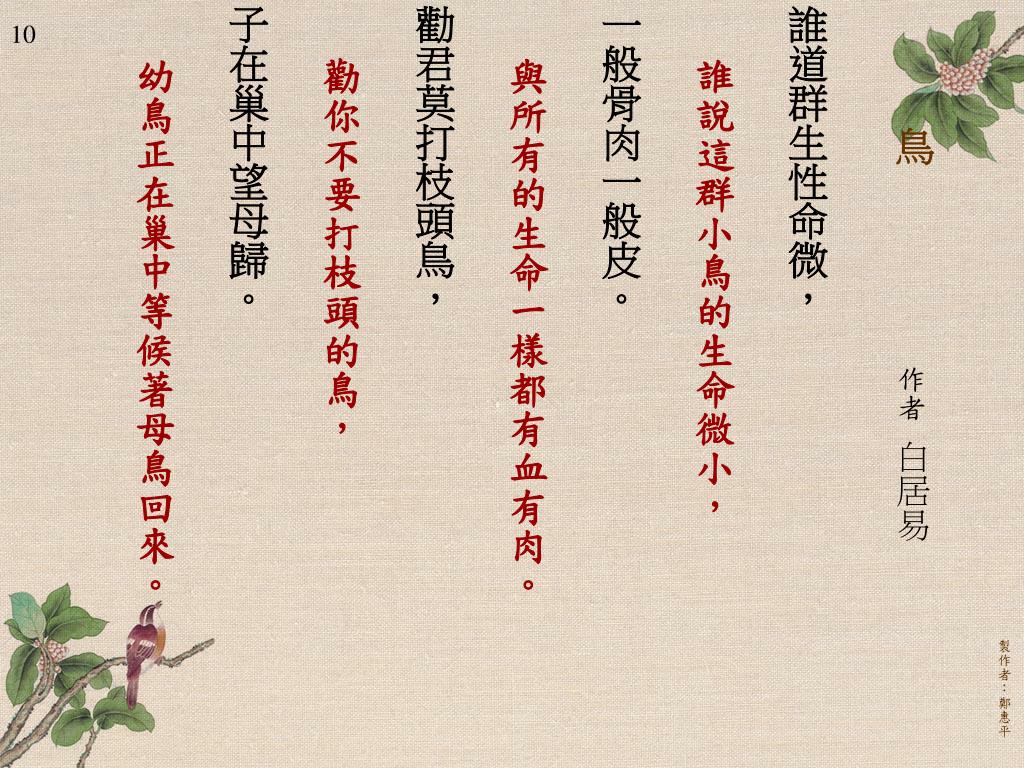 鳥
作者 白居易
誰道群生性命微，
誰說這群小鳥的生命微小，
一般骨肉一般皮。
與所有的生命一樣都有血有肉。
勸君莫打枝頭鳥，
勸你不要打枝頭的鳥，
子在巢中望母歸。
幼鳥正在巢中等候著母鳥回來。
製作者：鄭惠平
10